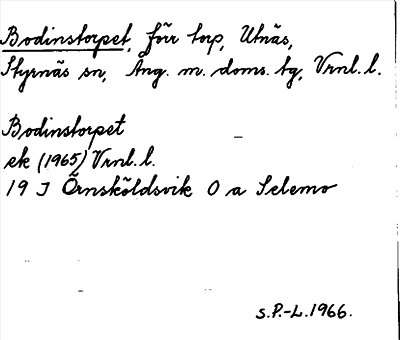 Bodinstorpet, förr torp, Utnäs,
Styrnäs sn, Ång. m. doms. tg, Vrnl. l.
Bodinstorpet
ek (1965) Vrnl. l.
19 J Örnsköldsvik O a Selemo
S.P.-L. 1966.